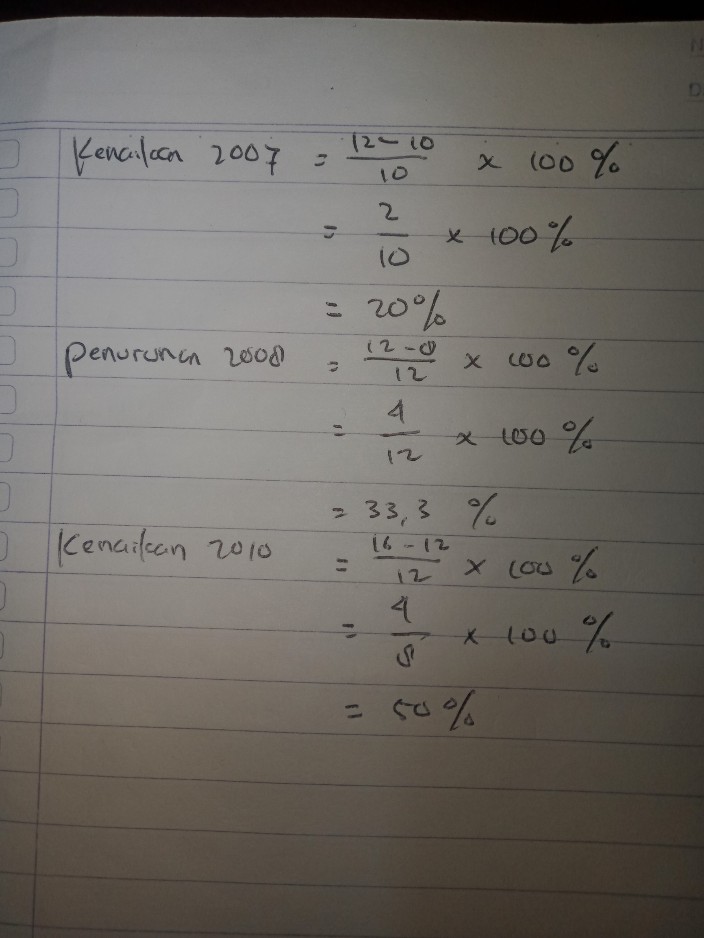 Kenaikan 2007 = 12-10/10 x 100 %
= 2/10 x 100 %
= 20 %
Penurunan 2008 = 12-8/12 x 100 %
= 4/12 x 100 %
= 33,3 %
Kenaikan 2010 = 16-12/12 x 100 %
= 4/8 x 100 %
= 50 %